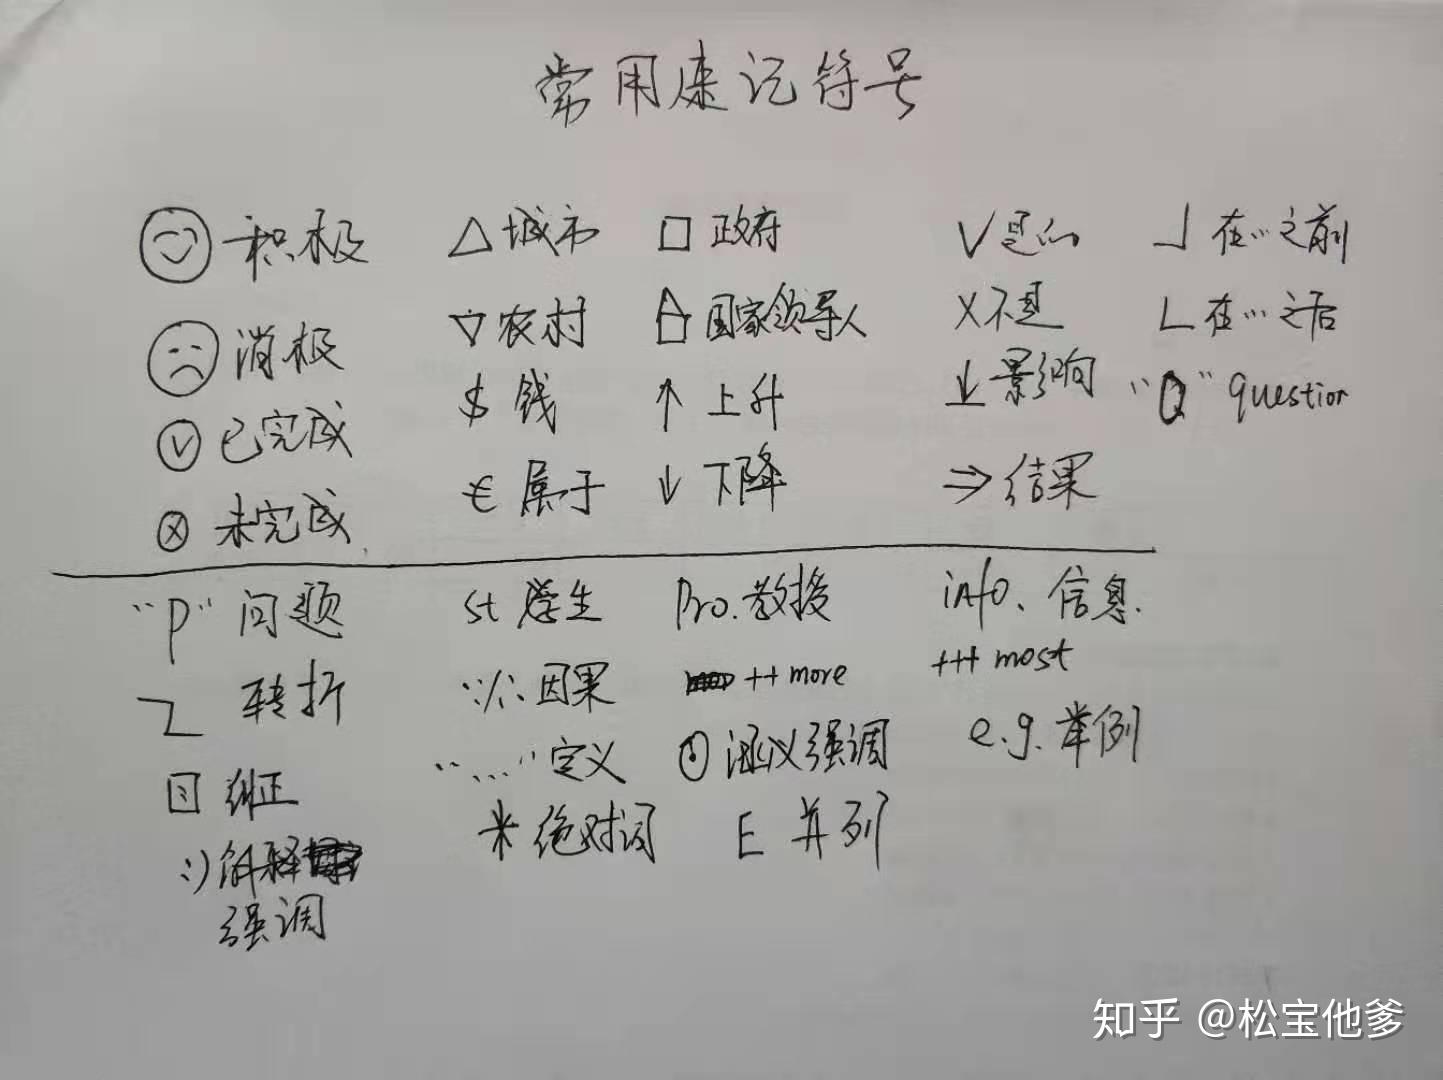 常用速记符号
积极 △ 城市 □ 政府 √ 是的 ┘ 在…之前
消极 ▽ 农村 国家领导人 × 不是 └ 在…之后
已完成 $ 钱 ↑ 上升 影响 “Q” question
未完成 € 属于 ↓ 下降 ⇒ 结果
“P” 问题 st 学生 Pro. 教授 info. 信息.
转折 ∵/∴ 因果 ++ more +++ most
纠正 “……” 定义 ⊙ 涵义强调 e.g. 举例
:) 解释 * 绝对词 E 并列
强调
知乎 @松宝他爹